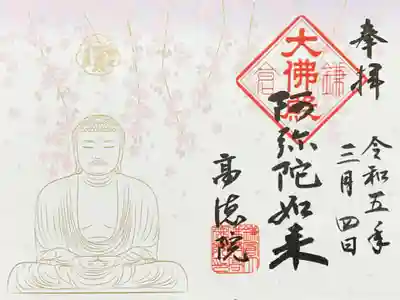 奉拝
令和五年
三月四日
大佛殿
鎌倉
阿弥陀如来
高徳院